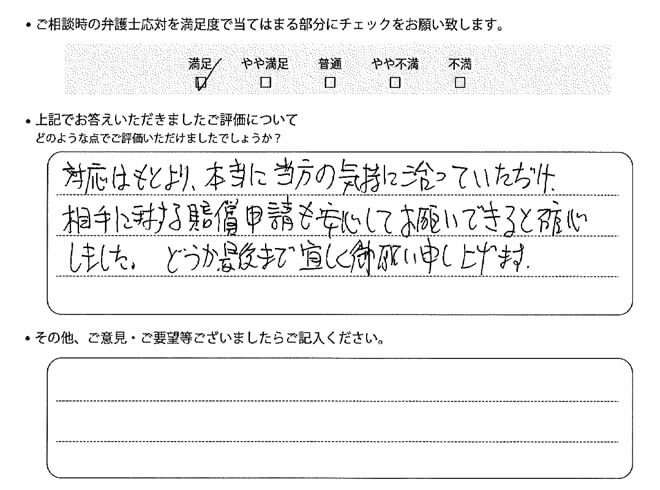 ・ご相談時の弁護士応対を満足度で当てはまる部分にチェックをお願い致します。
満足 やや満足 普通 やや不満 不満
・上記でお答えいただきましたご評価について
どのような点でご評価いただけましたでしょうか？
対応はもとより、本当に当方の気持に沿っていただけ、
相手に対する賠償申請も安心してお願いできると確心
しました。 どうか最後まで宜しく御願い申し上げます。
・その他、ご意見・ご要望等ございましたらご記入ください。